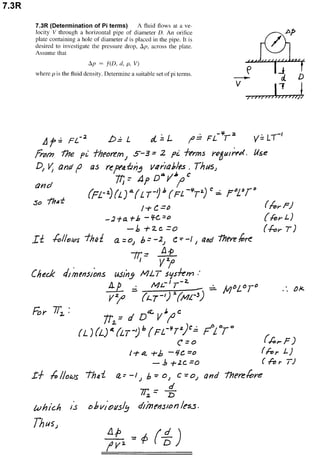 7.3R
7.3R (Determination of Pi terms) A fluid flows at a ve-
locity V through a horizontal pipe of diameter D. An orifice
plate containing a hole of diameter d is placed in the pipe. It is
desired to investigate the pressure drop, Δp, across the plate.
Assume that
Δp = f(D, d, ρ, V)
where ρ is the fluid density. Determine a suitable set of pi terms.
Δp
ρ
V
d
D
Δp ≐ FL⁻² D ≐ L d ≐ L ρ ≐ FL⁻⁴T² V ≐ LT⁻¹
From the pi theorem, 5-3 = 2 pi terms required. Use
D, V, and ρ as repeating variables. Thus,
π₁ = Δp Dᵃ Vᵇ ρᶜ
and
(FL⁻²)(L)ᵃ(LT⁻¹)ᵇ(FL⁻⁴T²)ᶜ ≐ F⁰L⁰T⁰
so that
1 + c = 0 (for F)
-2 + a + b - 4c = 0 (for L)
-b + 2c = 0 (for T)
It follows that a = 0, b = -2, c = -1, and therefore
π₁ = Δp / V²ρ
Check dimensions using MLT system:
Δp / V²ρ ≐ ML⁻¹T⁻² / (LT⁻¹)²(ML⁻³) ≐ M⁰L⁰T⁰ ∴ OK
For π₂:
π₂ = d Dᵃ Vᵇ ρᶜ
(L)(L)ᵃ(LT⁻¹)ᵇ(FL⁻⁴T²)ᶜ ≐ F⁰L⁰T⁰
c = 0 (for F)
1 + a + b - 4c = 0 (for L)
-b + 2c = 0 (for T)
It follows that a = -1, b = 0, c = 0, and therefore
π₂ = d / D
which is obviously dimensionless.
Thus,
Δp / ρV² = φ (d / D)